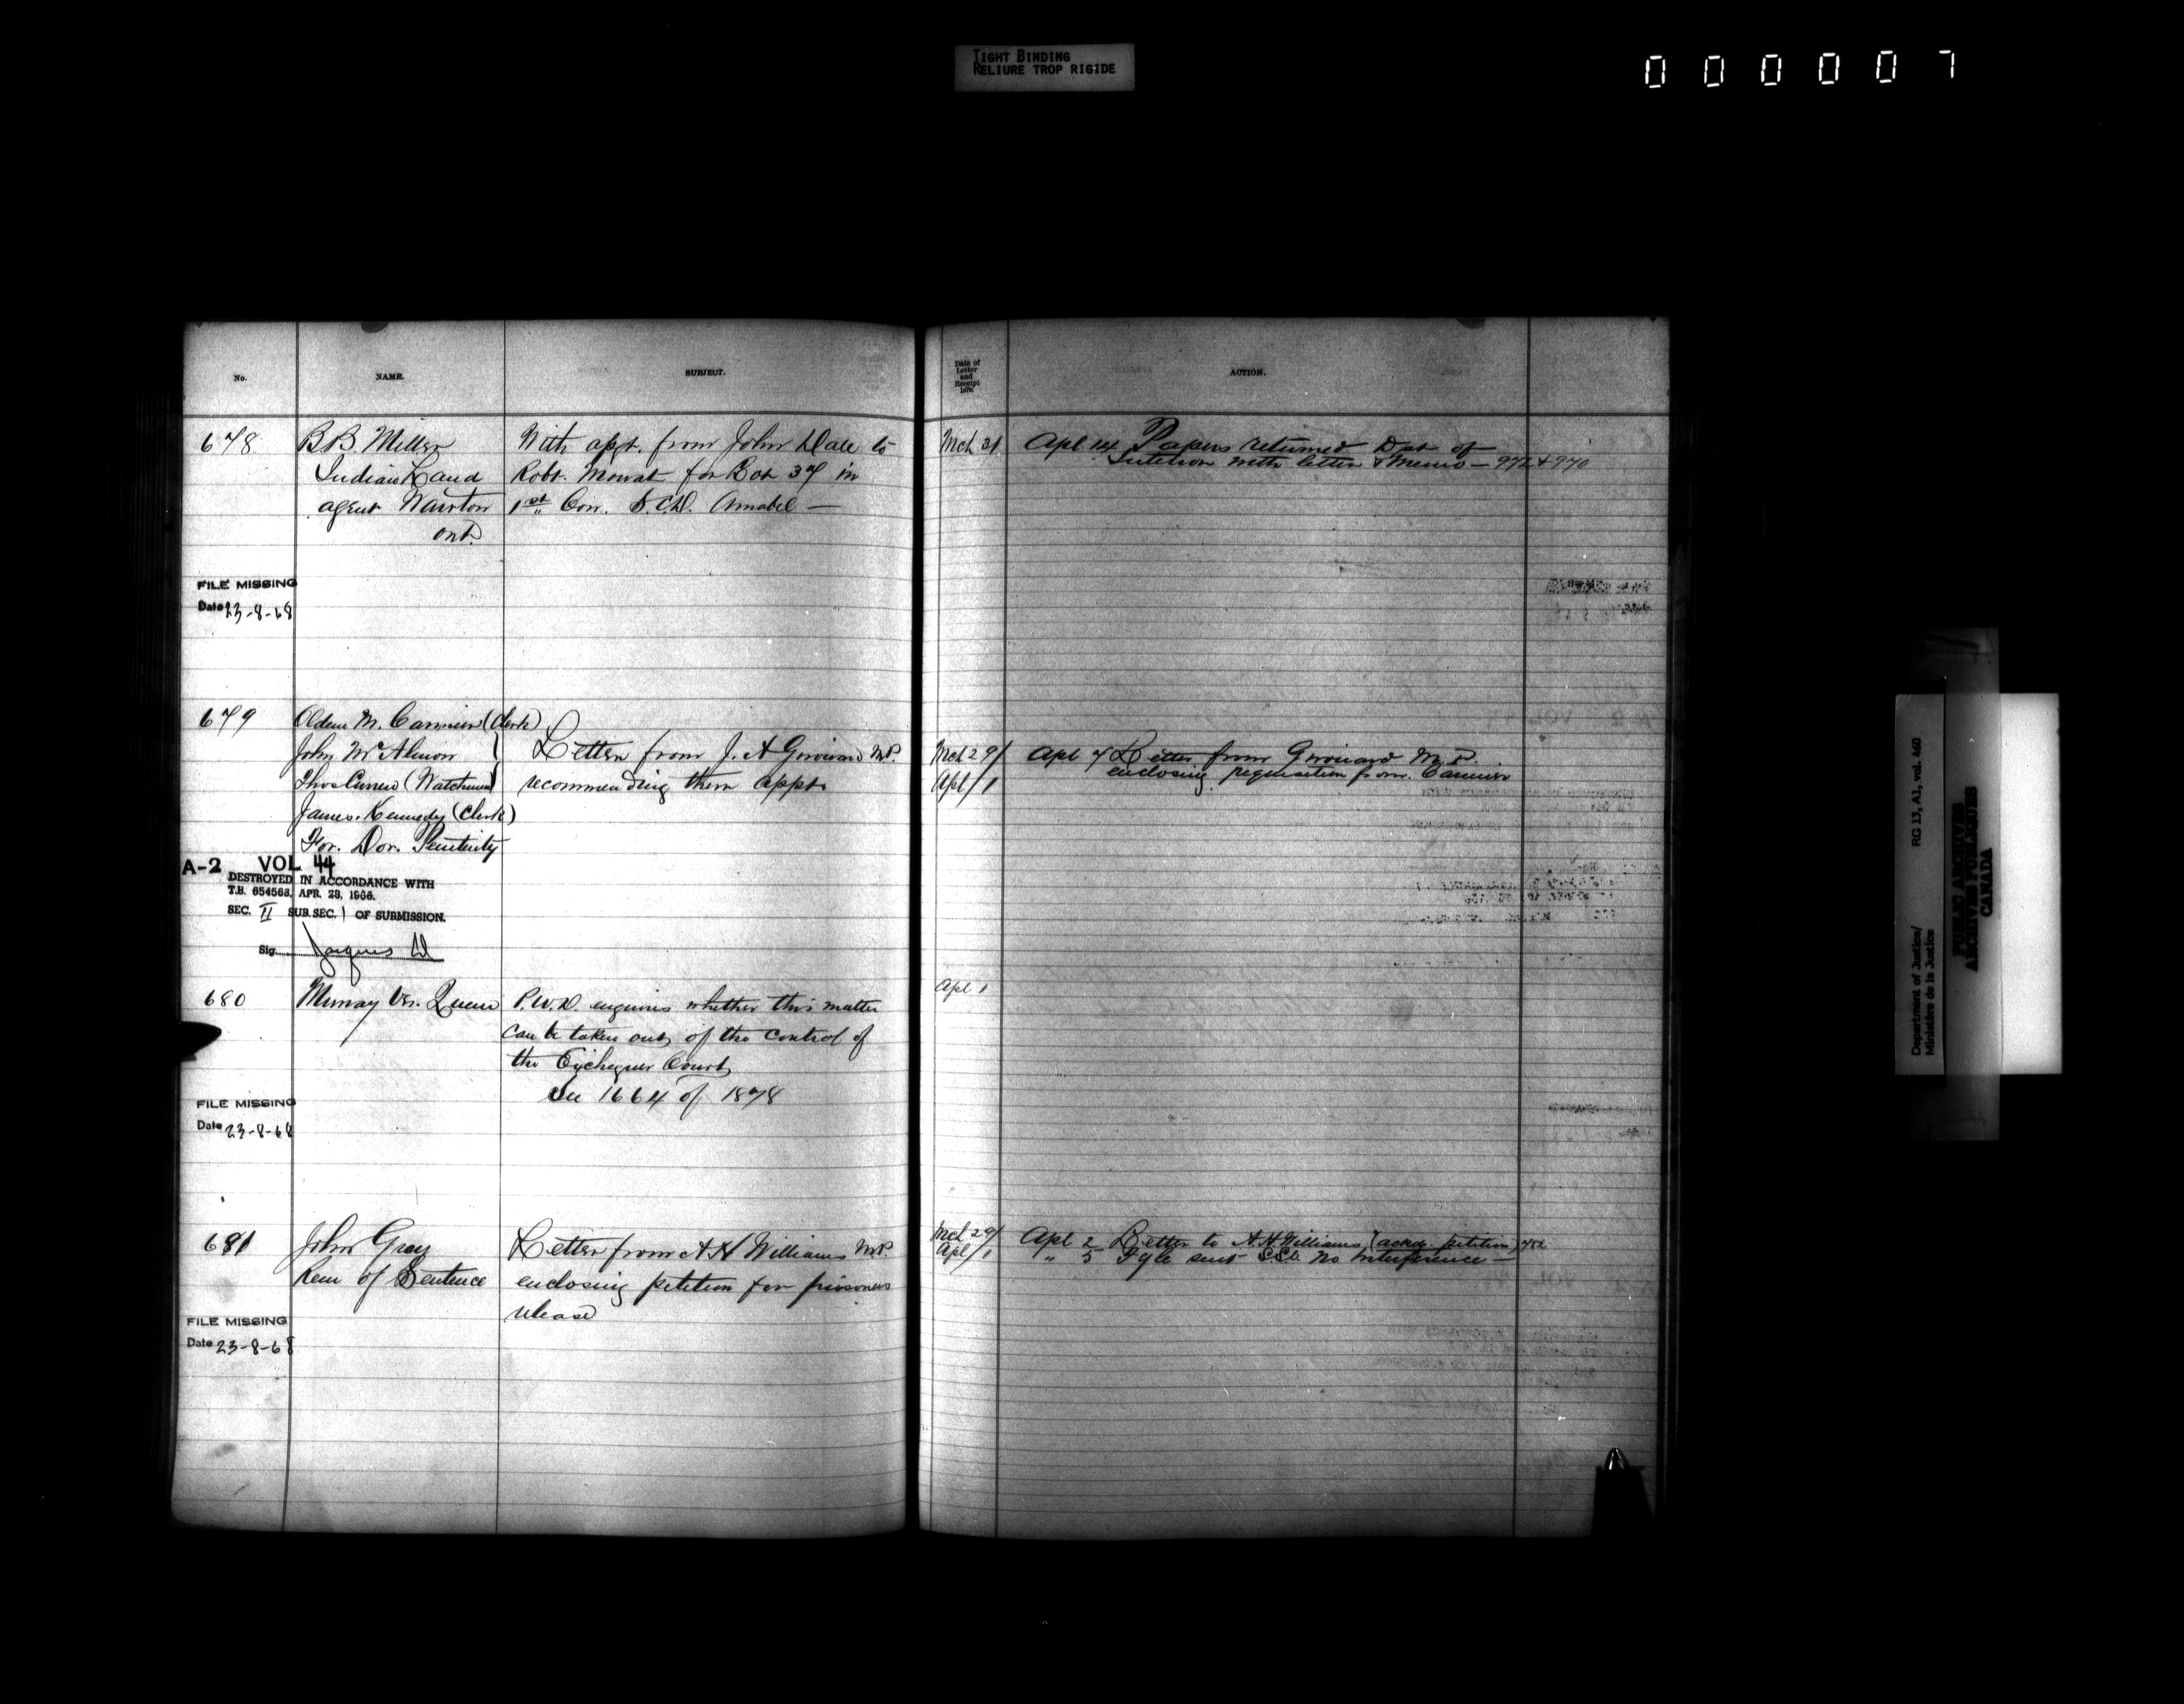 TIGHT BINDING
RELIURE TROP RIGIDE
000007
No.
NAME.
SUBJECT.
Date of
Letter
and
Receipt
ACTION.
678
B.B. Miller
Indian Land
agent Wiarton
Ont.
With from John Dale to
Robt. Mowat for Lot 37 in
1st Con. Amabel —
Mch 31
Apl 14 Papers returned Dpt of
with letter & Memo — 972 & 970
FILE MISSING
Date 23-8-68
679
M. (Clerk)
John McAlmon
Thos (Watchman)
James Kennedy (Clerk)
For. Dor. Penitenty
Letter from J. A Girouard M.P.
recommending them appts
Mch 29/
Apl / 1
Apl 7 Letter from Girouard M.P.
enclosing requisition from
A-2 VOL 44
DESTROYED IN ACCORDANCE WITH
T.B. 654563, APR. 28, 1966.
SEC. II SUB. SEC. 1 OF SUBMISSION.
Sig. Jacques
680
Murray vs. Queen
P.W.D. enquires whether this matter
can be taken out of the control of
the Exchequer Court
See 1664 of 1878
Apl 1
FILE MISSING
Date 23-8-68
681
John Gray
Rem of Sentence
Letter from A H Williams M.P.
enclosing petition for prisoners
release
Mch 29/
Apl / 1
Apl 2 Letter to A.H. Williams (ackg. petition)
" 5 Fyle sent S.S. No interference —
FILE MISSING
Date 23-8-68
Department of Justice/
Ministère de la Justice
RG 13, A1, vol. 460
PUBLIC ARCHIVES
ARCHIVES PUBLIQUES
CANADA